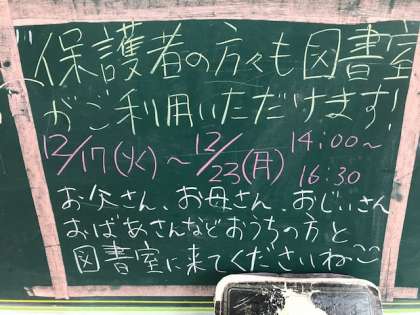 保護者の方々も図書室
がご利用いただけます!
12/17(火)~12/23(月) 14:00~
16:30
お父さん、お母さん、おじいさん
おばあさんなどおうちの方と
図書室に来てくださいね